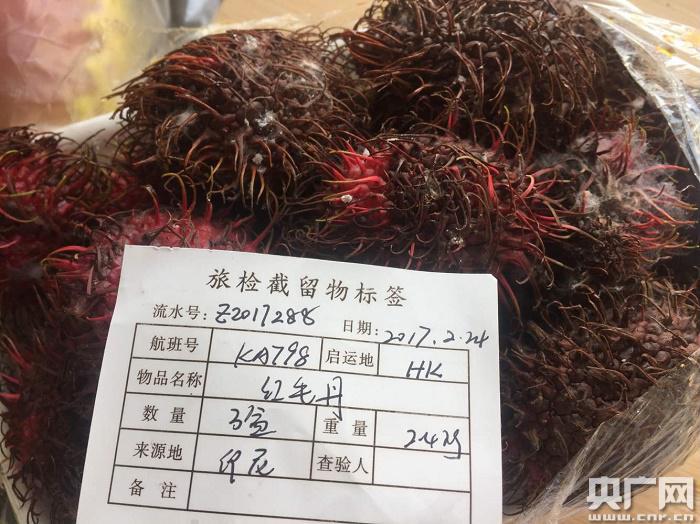 旅检截留物标签
流水号: Z2017288 日期: 2017.2.24
航班号 KA798 启运地 HK
物品名称 红毛丹
数量 3盒 重量
来源地 印尼 查验人
备注
央广网
www.cnr.cn